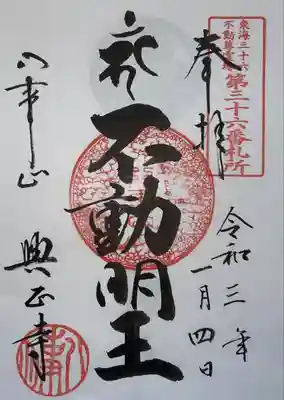 東海三十六
不動尊霊場
第三十六番札所
奉拝
令和三年
一月四日
不動明王
八事山
興正寺